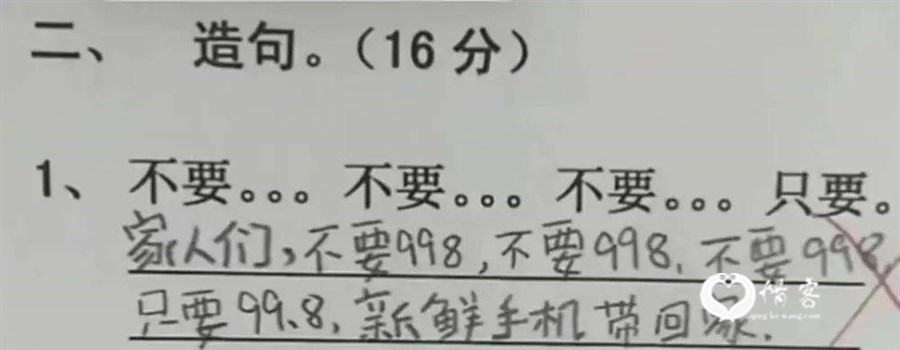 二、 造句。(16 分)
1、不要。。。不要。。。不要。。。只要。
家人们,不要998,不要998.不要998,
只要99.8,新鲜手机带回家.
倩客